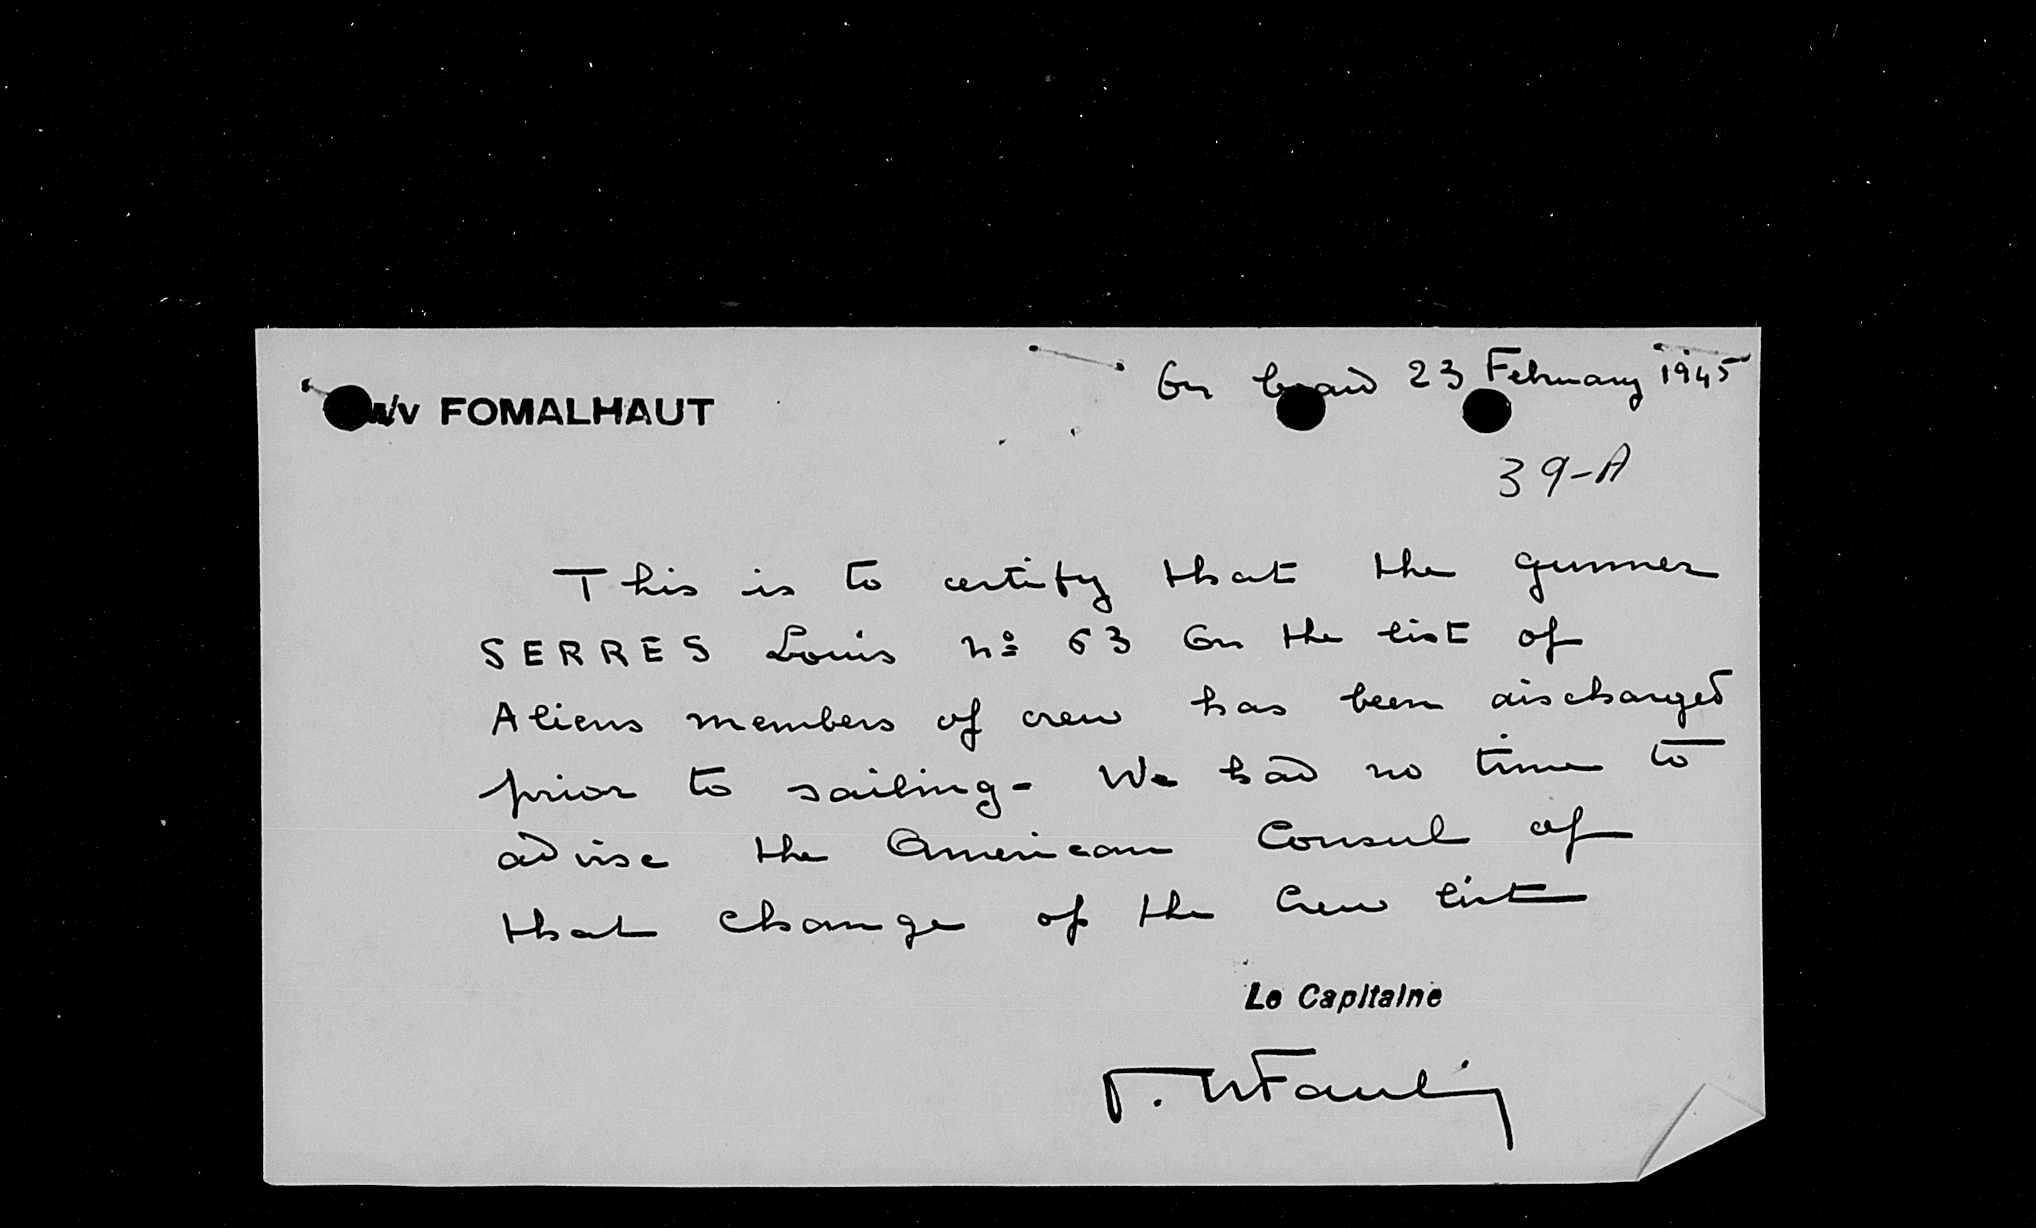 m/v FOMALHAUT
On board 23 February 1945
39-A
This is to certify that the gunner
SERRES Louis nº 63 On the list of
Aliens members of crew has been discharged
prior to sailing - We had no time to
advise the American Consul of
that change of the Crew list
Le Capitaine